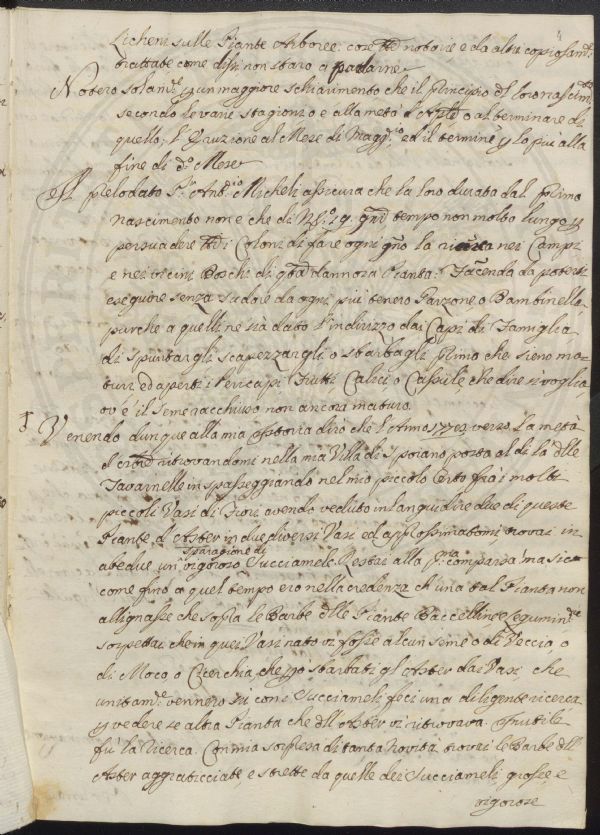 4
Licheni sulle Piante Arboree: cose tutte notorie e da altri copiosam.e
trattate come dissi non starò a parlarne
Noterò solam.e p un maggiore schiarimento che il principio d loro nascim.to
secondo le varie stagioni o e alla metà d'Aprile o al terminare di
quello; l'Eruzione al Mese di Magg.io ed il termine p lo più alla
fine di d.o Mese
Il prelodato P. Ant.io Micheli assicura che la loro durata dal primo
nascimento non è che di tempo non molto lungo p
persuadere i Coloni di fare ogni anno la ricerca nei Campi
e nei vicini Boschi di q dannosa Pianta: Facenda da potersi
eseguire senza sudore da ogni più tenero Garzone o Bambinello,
purche a quelli ne sia dato l'indirizzo dai Capi di Famiglia
di spuntargli scapezzargli o sbarbagli prima che sieno ma-
turi ed aperti i Pericapi Frutti Calici o Cassule che dire si voglia,
ov'è il seme racchiuso non ancora maturo.
Venendo dunque alla mia Istoria dirò che l'Anno verso la metà
d ritrovandomi nella mia Villa di Spoiano posta al di là dlle
Tavarnelle in spasseggiando nel mio piccolo Orto frà i molti
piccoli Vasi di Fiori avendo veduto in languidire due di queste
Piante d'Aster in due diversi Vasi ed approssimatomi trovai in
abedue un vigoroso sparagione di Succiamele. Restai alla p.ma comparsa ma sic-
come fino a quel tempo ero nella credenza ch'una tal Pianta non
allignasse che sopra le Barbe dlle Piante Baccelline Legumin.se
sospettai che in quei Vasi nato vi fosse alcun seme o di Veccia, o
di Moco o Cicerchia, che p sbarbati gl'Aster dai Vasi che
unitam.e vennero sù con i Succiameli feci una diligente ricerca
p vedere se altra Pianta che dll'Aster vi ritrovava. Inutile
fù la ricerca. Con mia sorpresa di tanta Novità trovai le Barbe dll
Aster aggraticciate e strette da quelle dei Succiameli grosse, e
vigorose